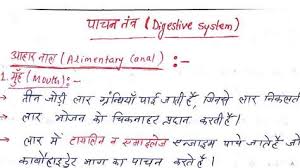 पाचन तंत्र (Digestive system)
आहार नाल (Alimentary Canal) :-
1. मुँह (Mouth) :-
→ तीन जोड़ी लार ग्रंथियाँ पाई जाती हैं, जिनसे लार निकलती
→ लार भोजन को चिकनाहट प्रदान करती है।
→ लार में टायलिन व एन्जाइम पाये जाते हैं जो
कार्बोहाइड्रेट भाग का पाचन करते हैं।